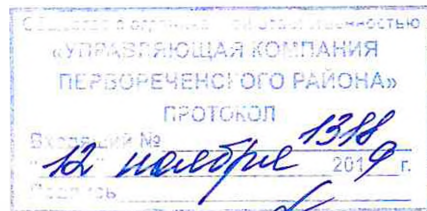 Общество с ограниченной ответственностью
«УПРАВЛЯЮЩАЯ КОМПАНИЯ
ПЕРВОРЕЧЕНСКОГО РАЙОНА»
ПРОТОКОЛ
Входящий № 1318
"12" ноября 2019 г.
Подпись